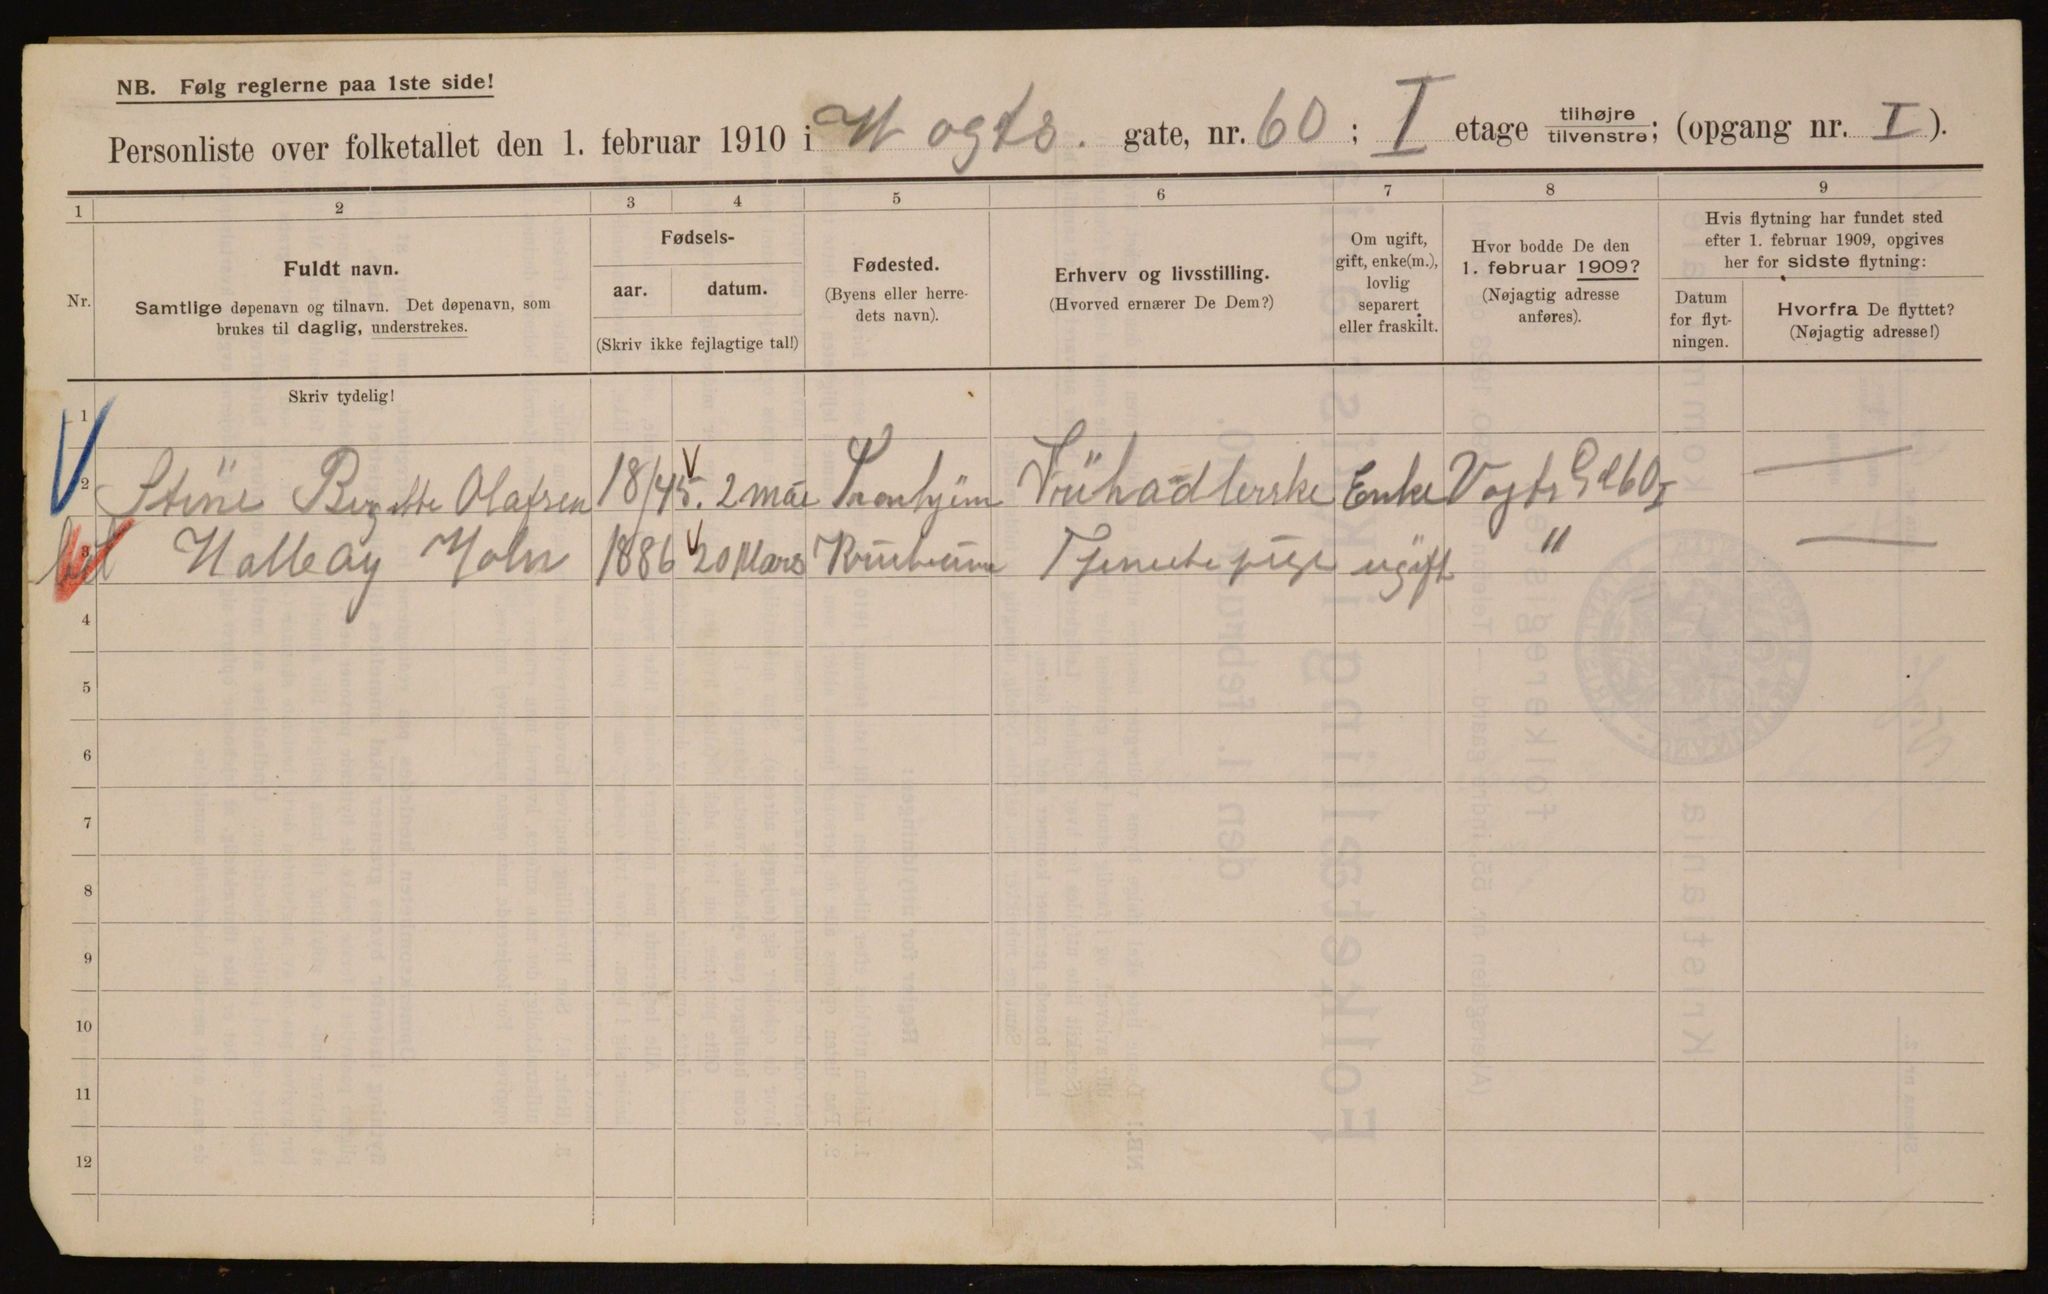 NB. Følg reglerne paa 1ste side!
Personliste over folketallet den 1. februar 1910 i Vogts. gate, nr. 60; I etage tilhøjre tilvenstre; (opgang nr. I).
1 2 3 4 5 6 7 8 9
Nr.
Fuldt navn.
Samtlige døpenavn og tilnavn. Det døpenavn, som
brukes til daglig, understrekes.
Fødsels-
aar. datum.
(Skriv ikke fejlagtige tal!)
Fødested.
(Byens eller herre-
dets navn).
Erhverv og livsstilling.
(Hvorved ernærer De Dem?)
Om ugift,
gift, enke(m.),
lovlig
separert
eller fraskilt.
Hvor bodde De den
1. februar 1909?
(Nøjagtig adresse
anføres).
Hvis flytning har fundet sted
efter 1. februar 1909, opgives
her for sidste flytning:
Datum
for flyt-
ningen.
Hvorfra De flyttet?
(Nøjagtig adresse!)
Skriv tydelig!
1
2 Stine Olafsen 1845. 2 mai Tronhjem Enke Vogts G 60 I
3 Holm 1886 20 Mars ugift "
4
5
6
7
8
9
10
11
12